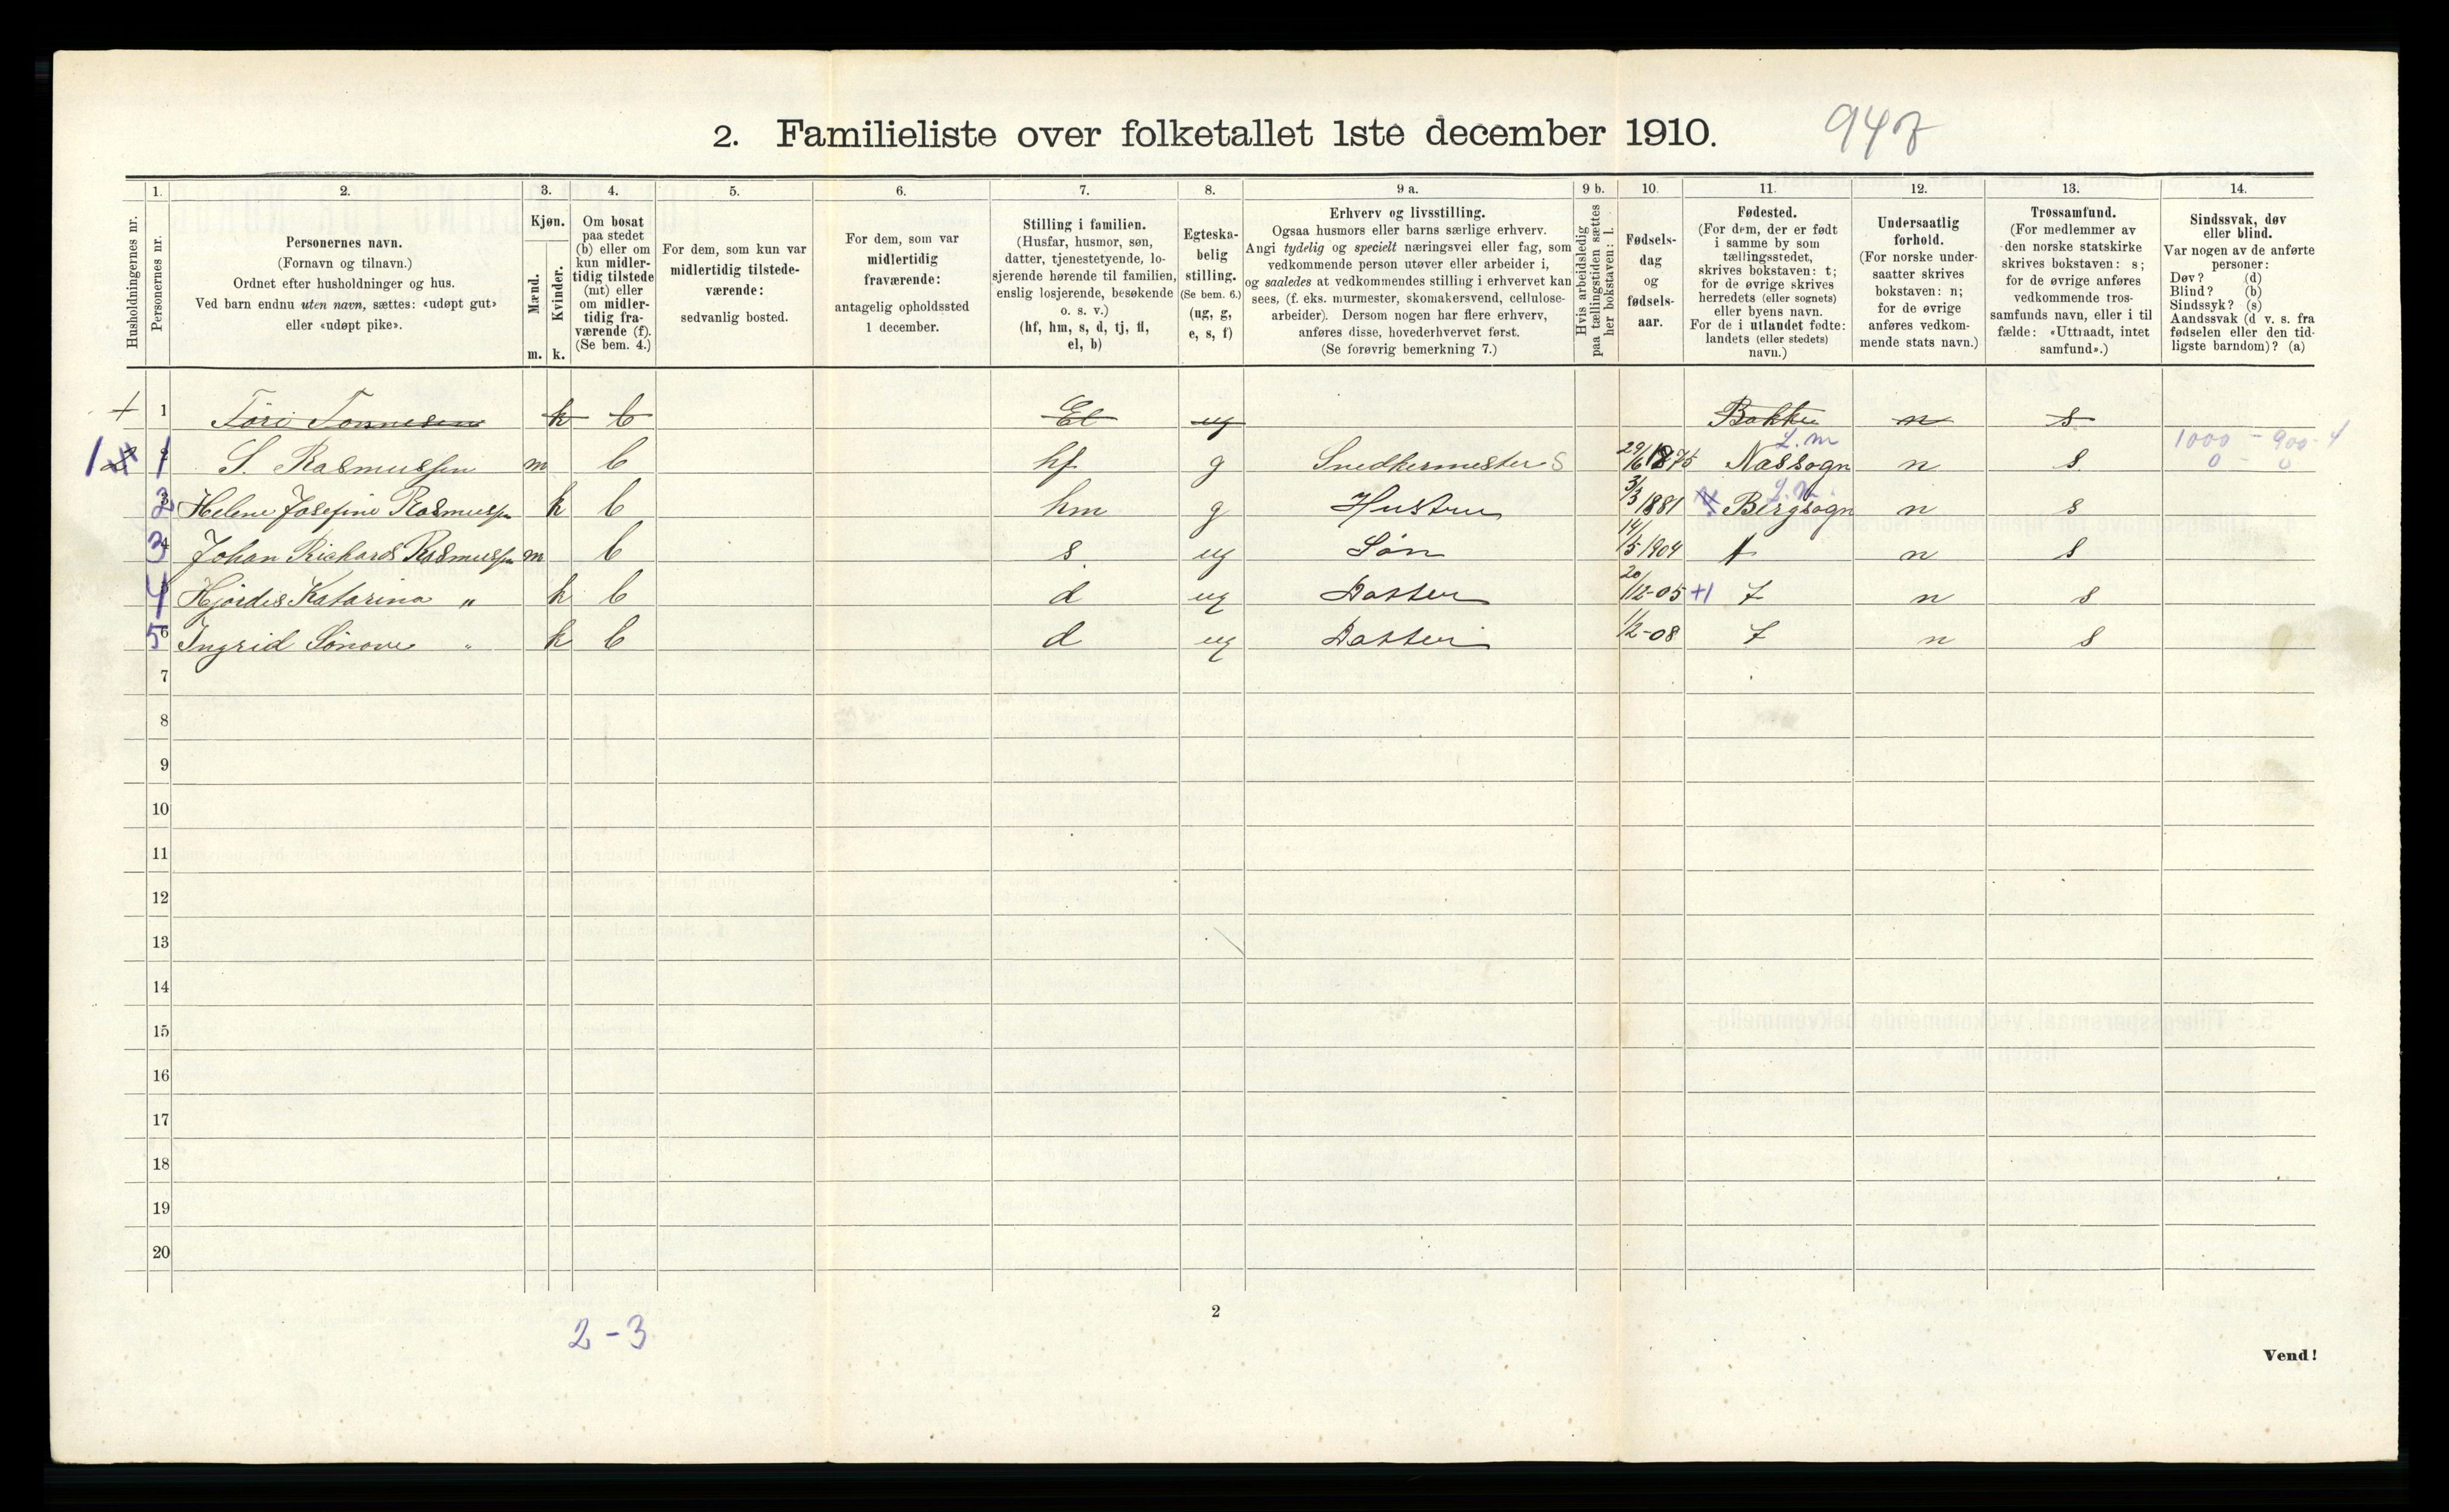 2. Familieliste over folketallet 1ste december 1910.
947
Husholdningernes nr.
1.
Personernes nr.
2.
Personernes navn.
(Fornavn og tilnavn.)
Ordnet efter husholdninger og hus.
Ved barn endnu uten navn, sættes: «udøpt gut»
eller «udøpt pike».
3.
Kjøn.
Mænd.
Kvinder.
m. k.
4.
Om bosat
paa stedet
(b) eller om
kun midler-
tidig tilstede
(mt) eller
om midler-
tidig fra-
værende (f).
(Se bem. 4.)
5.
For dem, som kun var
midlertidig tilstede-
værende:
sedvanlig bosted.
6.
For dem, som var
midlertidig
fraværende:
antagelig opholdssted
1 december.
7.
Stilling i familien.
(Husfar, husmor, søn,
datter, tjenestetyende, lo-
sjerende hørende til familien,
enslig losjerende, besøkende
o. s. v.)
(hf, hm, s, d, tj, fl,
el, b)
8.
Egteska-
belig
stilling.
(Se bem. 6.)
(ug, g,
e, s, f)
9 a.
Erhverv og livsstilling.
Ogsaa husmors eller barns særlige erhverv.
Angi tydelig og specielt næringsvei eller fag, som
vedkommende person utøver eller arbeider i,
og saaledes at vedkommendes stilling i erhvervet kan
sees, (f. eks. murmester, skomakersvend, cellulose-
arbeider). Dersom nogen har flere erhverv,
anføres disse, hovederhvervet først.
(Se forøvrig bemerkning 7.)
9 b.
Hvis arbeidsledig
paa tællingstiden sættes
her bokstaven: l.
10.
Fødsels-
dag
og
fødsels-
aar.
11.
Fødested.
(For dem, der er født
i samme by som
tællingsstedet,
skrives bokstaven: t;
for de øvrige skrives
herredets (eller sognets)
eller byens navn.
For de i utlandet fødte:
landets (eller stedets)
navn.)
12.
Undersaatlig
forhold.
(For norske under-
saatter skrives
bokstaven: n;
for de øvrige
anføres vedkom-
mende stats navn.)
13.
Trossamfund.
(For medlemmer av
den norske statskirke
skrives bokstaven: s;
for de øvrige anføres
vedkommende tros-
samfunds navn, eller i til
fælde: «Uttraadt, intet
samfund».)
14.
Sindssvak, døv
eller blind.
Var nogen av de anførte
personer:
Døv? (d)
Blind? (b)
Sindssyk? (s)
Aandssvak (d v. s. fra
fødselen eller den tid-
ligste barndom)? (a)
+ 1 Tonnesen k b El ug Bakke n s
1 1 S. Rasmussen m b hf g Snedkermester S 29/6 1875 Næssogn L. m n s 1000 - 900 - 4
0 - 0
2 Helene Josefine Rasmussen k b hm g Hustru 3/3 1881 Bergsogn n s
3 Johan Richard Rasmussen m b s ug Søn 14/5 1904 t n s
4 Hjördis Katarina " k b d ug Datter 20/12-05 +1 t n s
5 6 Ingrid Sönove " k b d ug Datter 1/2-08 t n s
7
8
9
10
11
12
13
14
15
16
17
18
19
20
2
2-3
Vend!